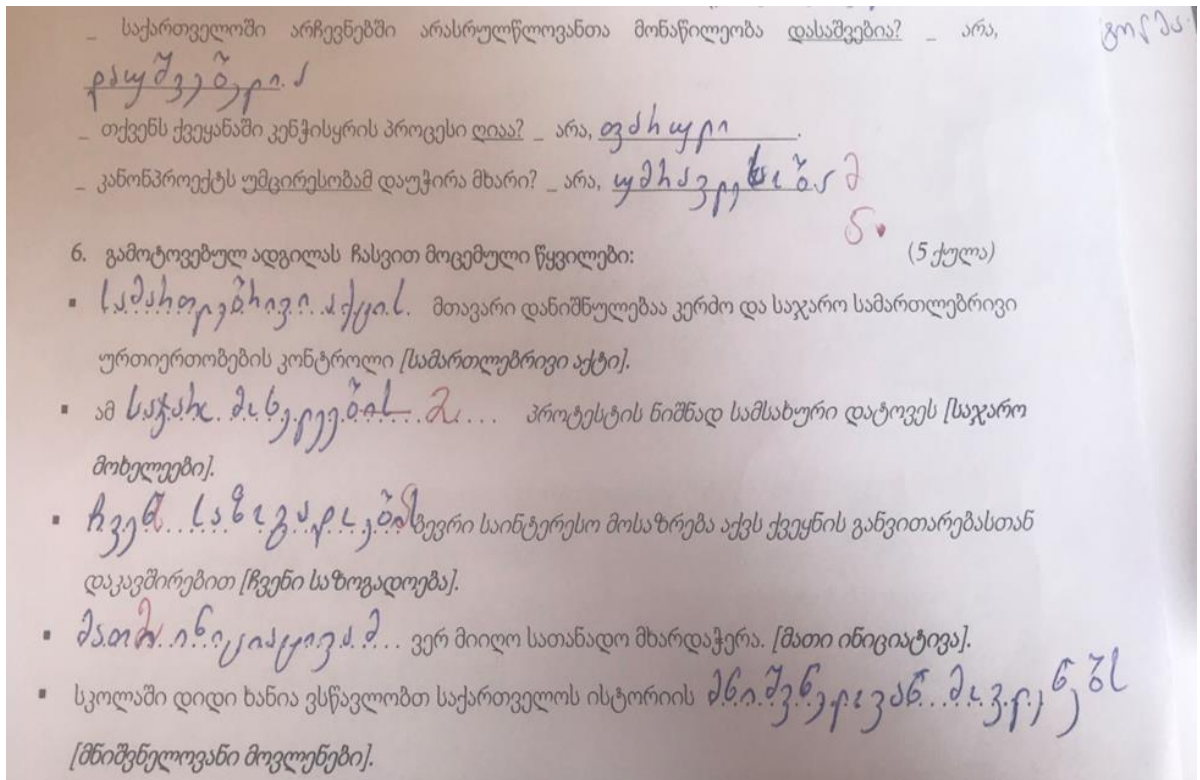 _ საქართველოში არჩევნებში არასრულწლოვანთა მონაწილეობა დასაშვებია? _ არა,
დაუშვებელია
_ თქვენს ქვეყანაში კენჭისყრის პროცესი ღიაა? _ არა, ფარული.
_ კანონპროექტს უმცირესობამ დაუჭირა მხარი? _ არა, უმრავლესობამ
5
6. გამოტოვებულ ადგილას ჩასვით მოცემული წყვილები: (5 ქულა)
▪ სამართლებრივი აქტის მთავარი დანიშნულებაა კერძო და საჯარო სამართლებრივი
ურთიერთობების კონტროლი [სამართლებრივი აქტი].
▪ ამ საჯარო მოხელეების მ.... პროტესტის ნიშნად სამსახური დატოვეს [საჯარო
მოხელეები].
▪ ჩვენ საზოგადოებას ბევრი საინტერესო მოსაზრება აქვს ქვეყნის განვითარებასთან
დაკავშირებით [ჩვენი საზოგადოება].
▪ მათმა ინიციატივამ... ვერ მიიღო სათანადო მხარდაჭერა. [მათი ინიციატივა].
▪ სკოლაში დიდი ხანია ვსწავლობთ საქართველოს ისტორიის მნიშვნელოვან მოვლენებს
[მნიშვნელოვანი მოვლენები].